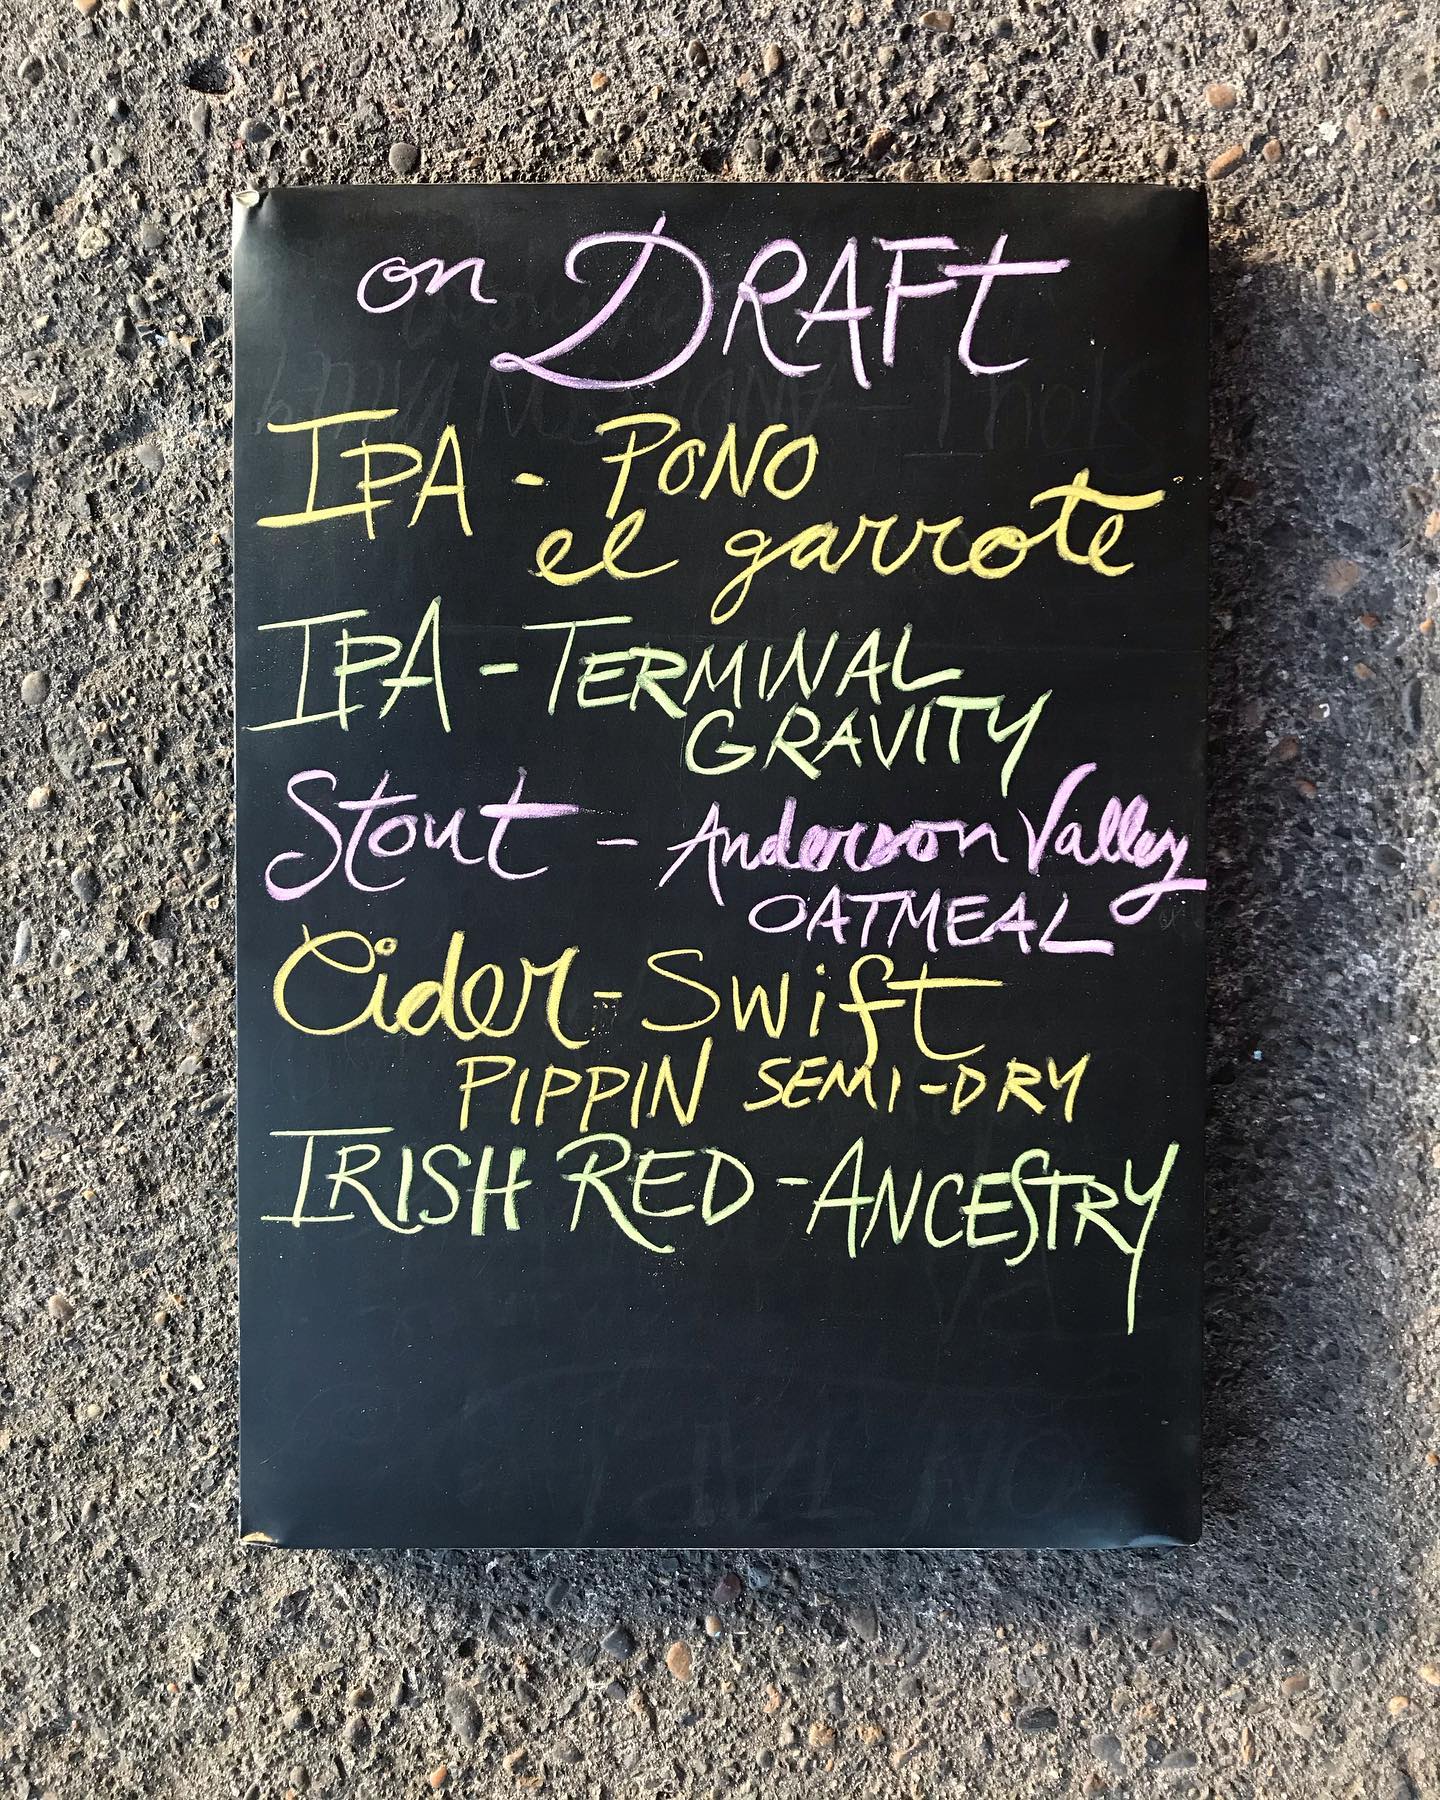 on DRAFt
IPA - PONO
el garrote
IPA - TERMINAL
GRAVITY
Stout - Anderson Valley
OATMEAL
Cider - Swift
PIPPIN SEMI-DRY
IRISH RED - ANCESTRY